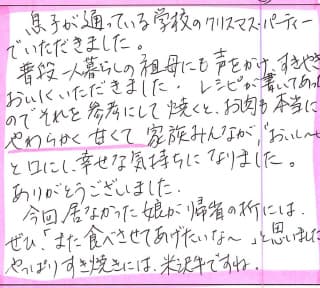 息子が通っている学校のクリスマス・パーティー
でいただきました。
普段一人暮らしの祖母にも声をかけ、すきやき
おいしくいただきました。レシピが書いてあった
のでそれを参考にして焼くと、お肉も本当に
やわらかく甘くて家族みんなが、"おいし〜
と口にし、幸せな気持ちになりました。
ありがとうございました。
今回居なかった娘が帰省の折には、
ぜひ「また食べさせてあげたいな〜」と思いました
やっぱりすき焼きには、米沢牛ですね。